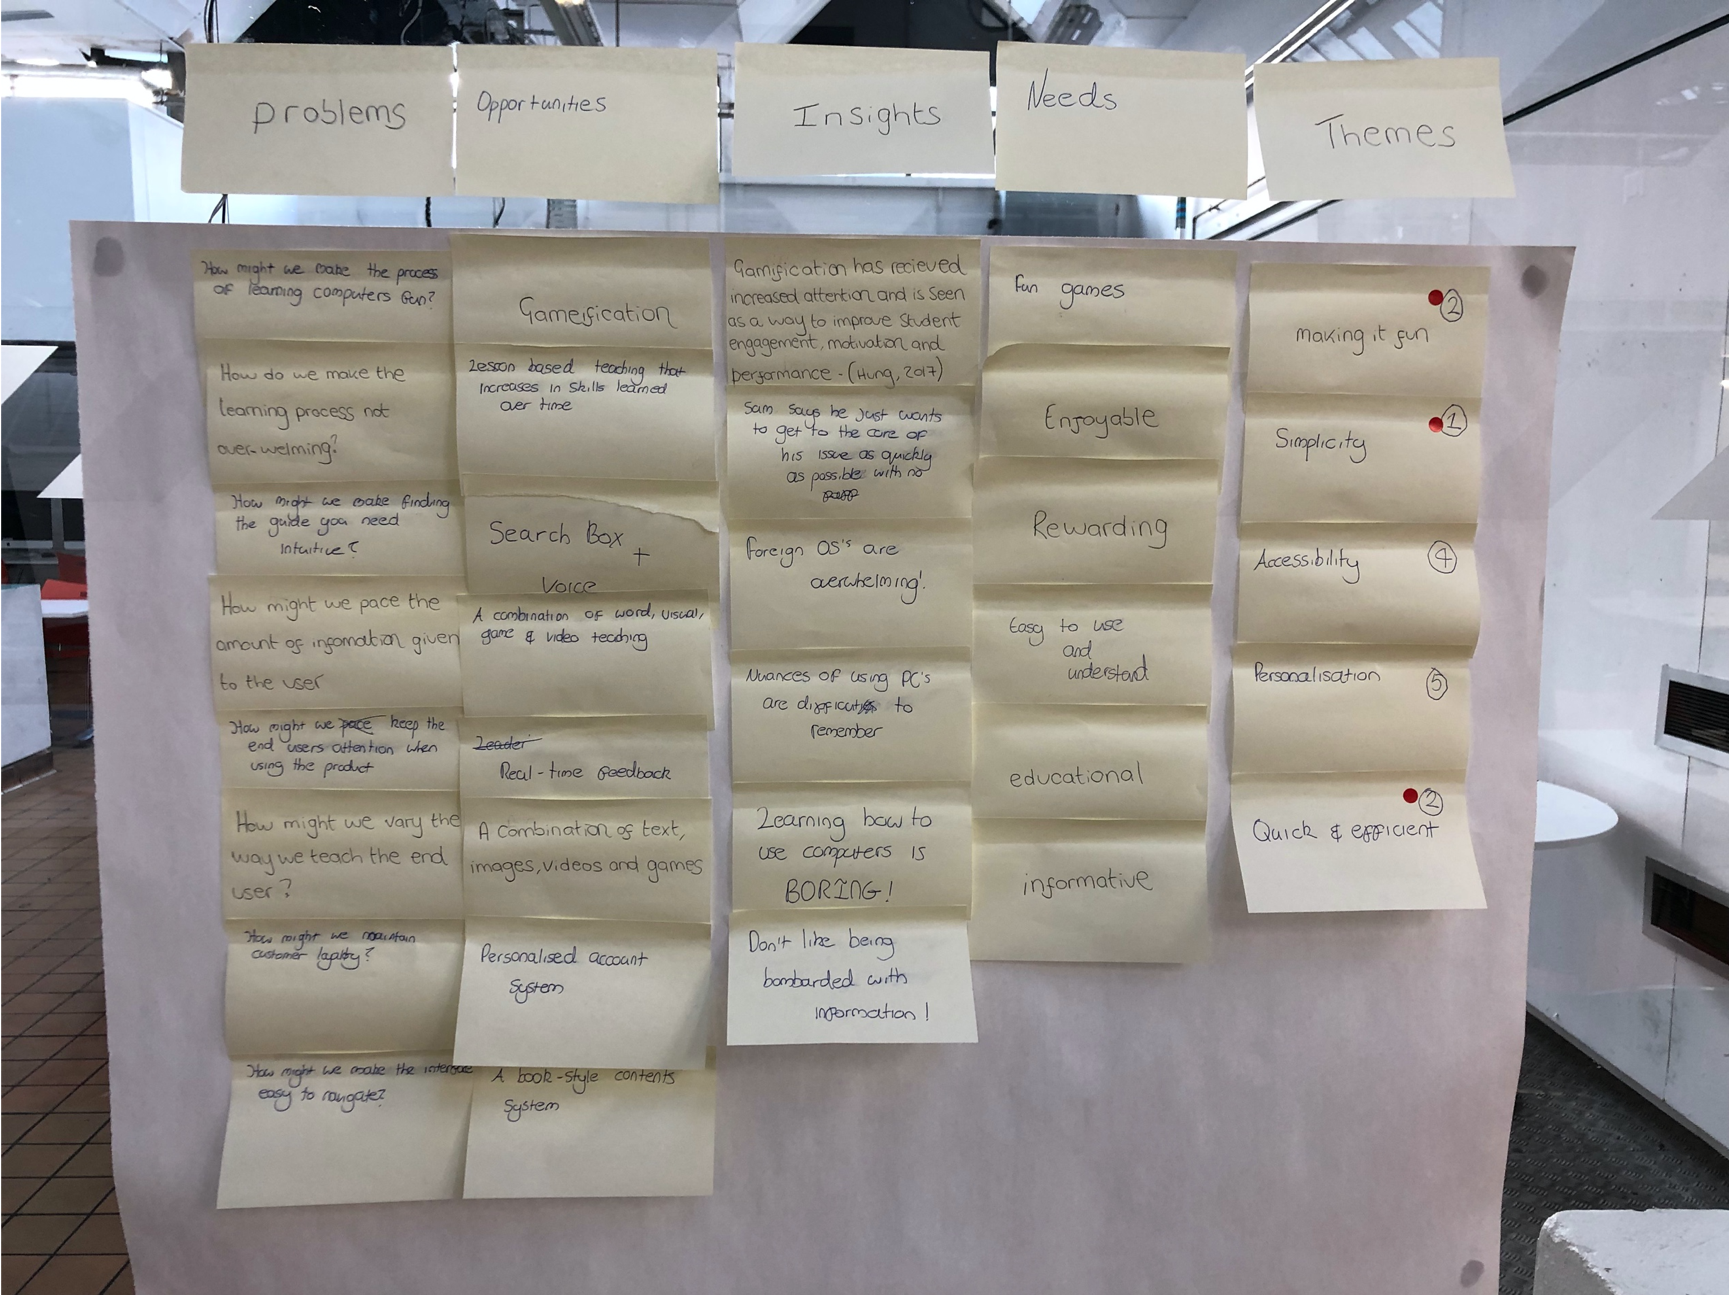 Problems
Opportunities
Insights
Needs
Themes
How might we make the process
of learning computers fun?
How do we make the
learning process not
over-welming?
How might we make finding
the guide you need
intuitive?
How might we pace the
amount of infomation given
to the user
How might we pace keep the
end users attention when
using the product
How might we vary the
way we teach the end
user?
How might we maintain
customer loyalty?
How might we make the interface
easy to navigate?
Gameification
Lesson based teaching that
increases in skills learned
over time
Search Box
+
Voice
A combination of word, visual,
game & video teaching
Leader
Real-time feedback
A combination of text,
images, videos and games
Personalised account
System
A book-style contents
System
Gamification has recieved
increased attention and is seen
as a way to improve student
engagement, motivation and
performance - (Hung, 2017)
Sam says he just wants
to get to the core of
his issue as quickly
as possible with no
Foreign OS's are
overwhelming!
Nuances of using PC's
are difficult to
remember
Learning how to
use computers is
BORING!
Don't like being
bombarded with
information!
Fun games
Enjoyable
Rewarding
Easy to use
and
understand
educational
informative
2
making it fun
1
Simplicity
Accessibility 4
Personalisation 5
2
Quick & efficient